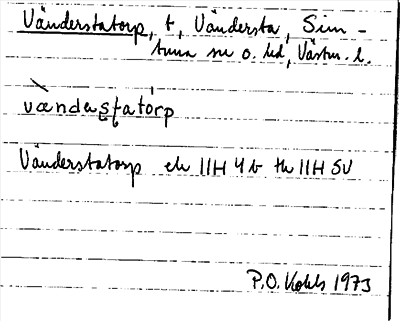 Vänderstatorp, t, Vändersta, Sim-
tuna sn o. hd, Västm. l.
vændaʂʈatórp
Vänderstatorp ek 11H 4b th 11H SV
P.O. 1973